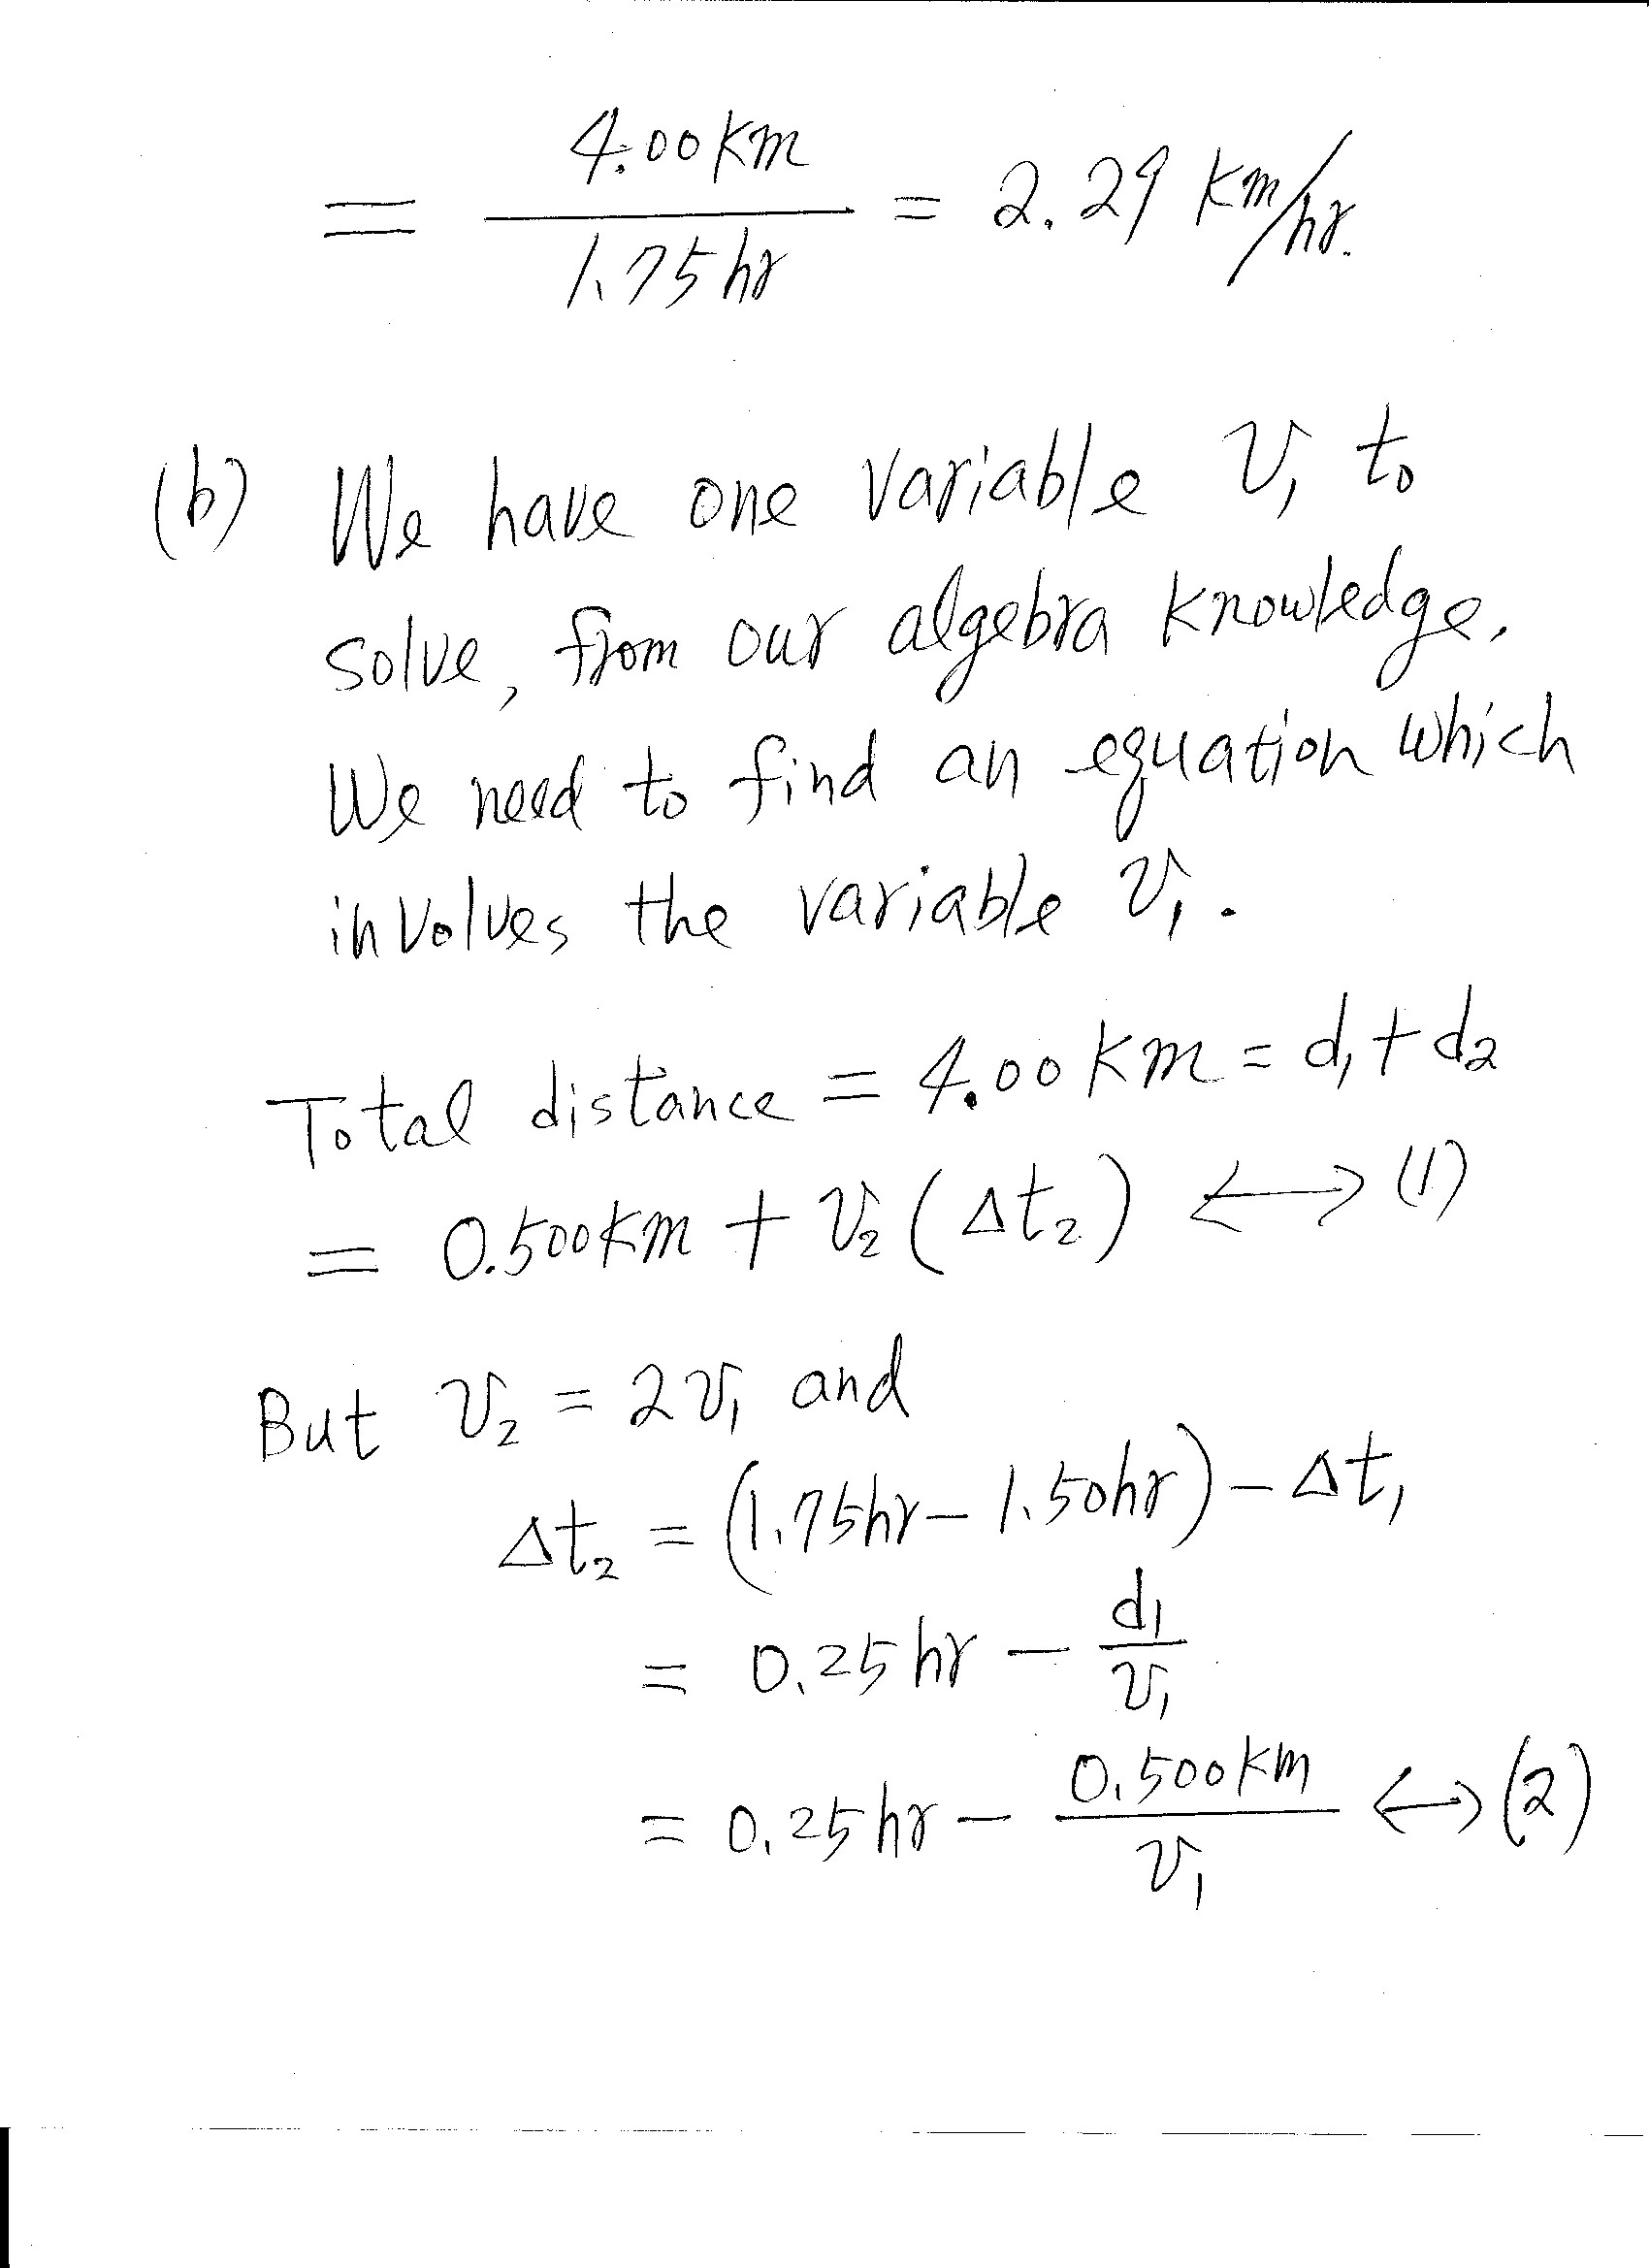 = 4.00 km / 1.75 hr = 2.29 km/hr.
(b) We have one variable v₁ to
solve, from our algebra knowledge.
We need to find an equation which
involves the variable v₁.
Total distance = 4.00 km = d₁ + d₂
= 0.500 km + v₂ (Δt₂) ⟷ (1)
But v₂ = 2v₁ and
Δt₂ = (1.75 hr − 1.50 hr) − Δt₁
= 0.25 hr − d₁/v₁
= 0.25 hr − 0.500 km/v₁ ⟷ (2)